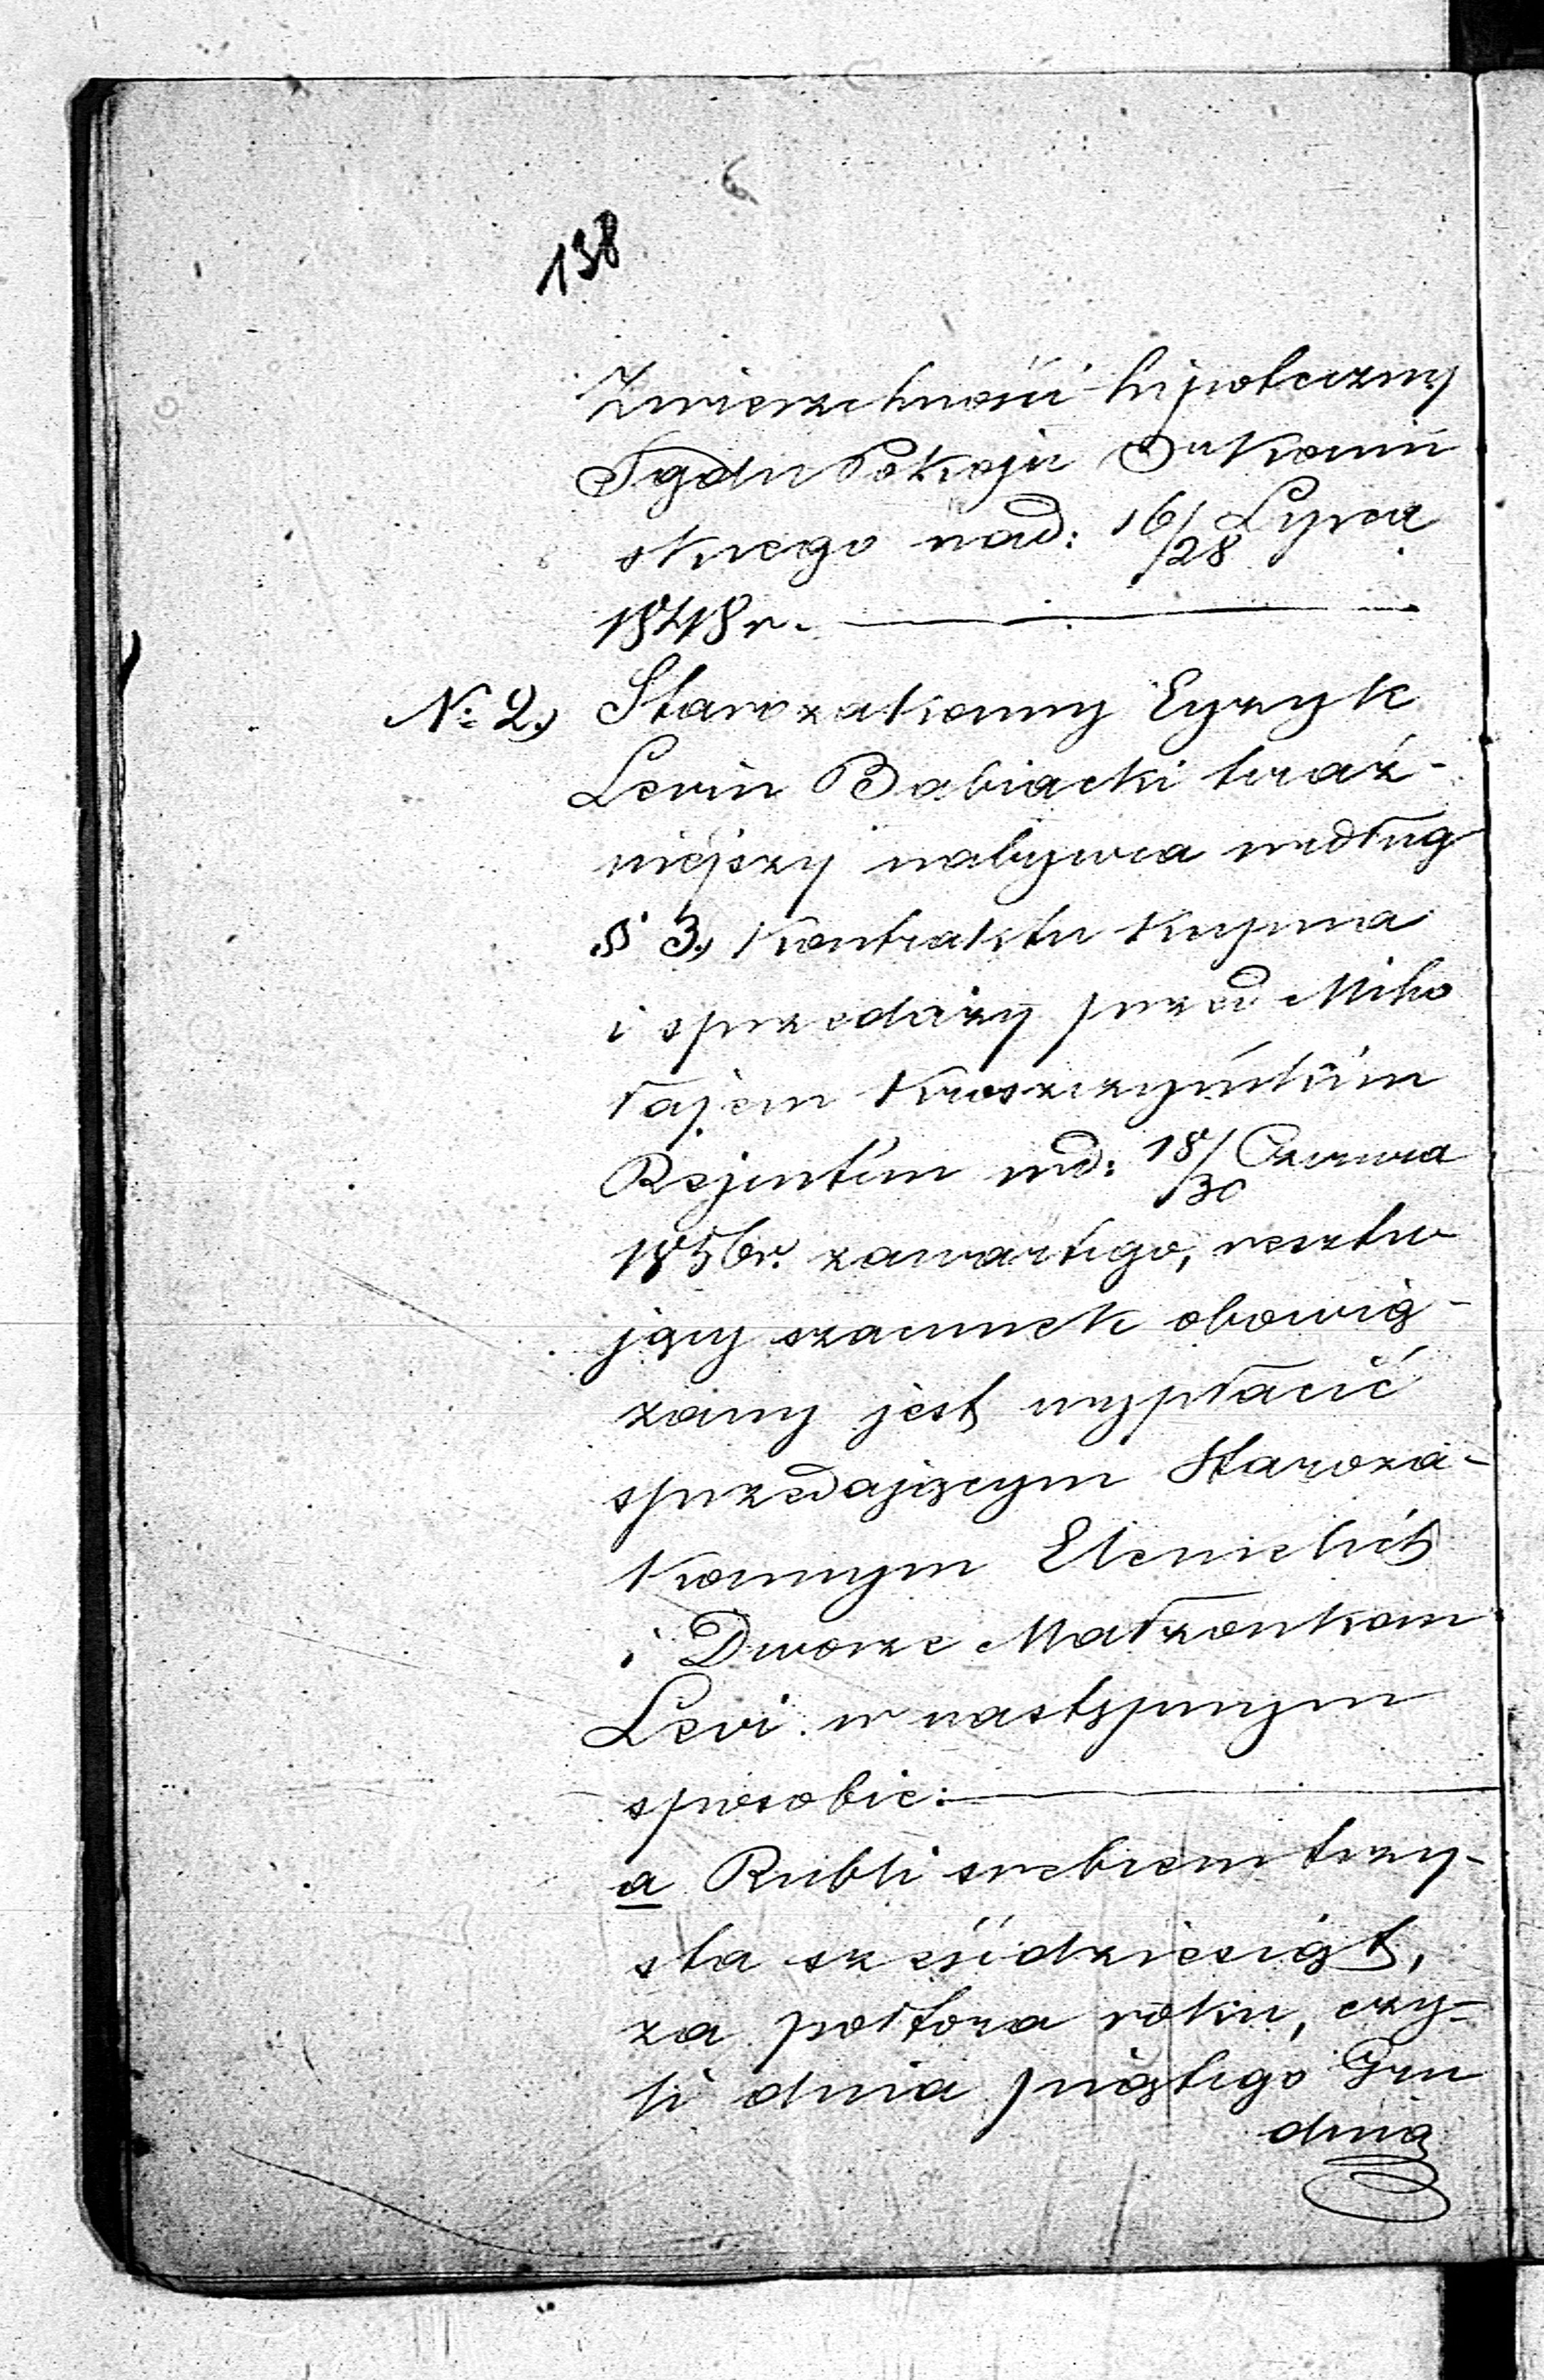 138
Zwierzchności hipoteczny
Sądu Pokoju O. Konin
skiego nad: 16/28 Lipca
1848 r.
No 2, Starozakonny Eyzyk
Lewin Babiacki teraź-
niejszy nabywca według
§ 3, Kontraktu Kupna
i sprzedaży przed Miko
łajem Kroszczyńskim
Rejentem nd: 18/30 Czerwca
1856 r. zawartego, resztu
jący szacunek obowią-
zany jest wypłacić
sprzedającym Staroza-
konnym
i Dworze Małżonkom
Levi w następnym
sposobie:
a Rubli srebrem trzy-
sta sześćdziesiąt,
za półtora roku, czy-
li dnia piątego Gru
dnia